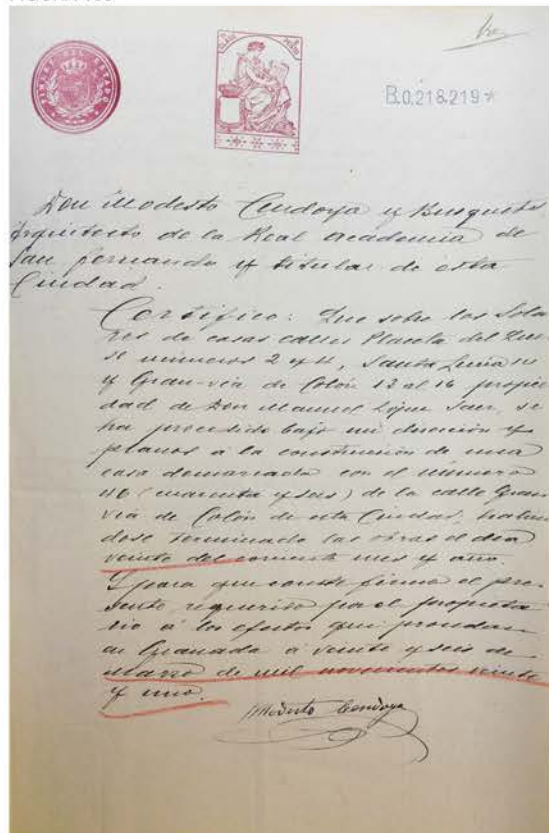 TIMBRE DEL ESTADO
B.0.218.219*
Don Modesto Cendoya y Busquets
Arquitecto de la Real Academia de
San Fernando y titular de esta
Ciudad.
Certifico: Que sobre los Sola
res de casas calles Placeta del
numeros 2 y 4, Santa Lucia 14
y Gran-via de Colón 13 al 16 propie
dad de Don Manuel López Saez, se
ha procedido bajo mi direccion y
planos á la construccion de una
casa demarcada con el número
46 (cuarenta y seis) de la calle Gran
via de Colón de esta Ciudad, habien
dose terminado las obras el dia
veinte del corriente mes y año.
Y para que conste firmo el pre
sente requerido por el propieta
rio á los efectos que procedan
en Granada á veinte y seis de
Marzo de mil novecientos veinte
y uno.
Modesto Cendoya